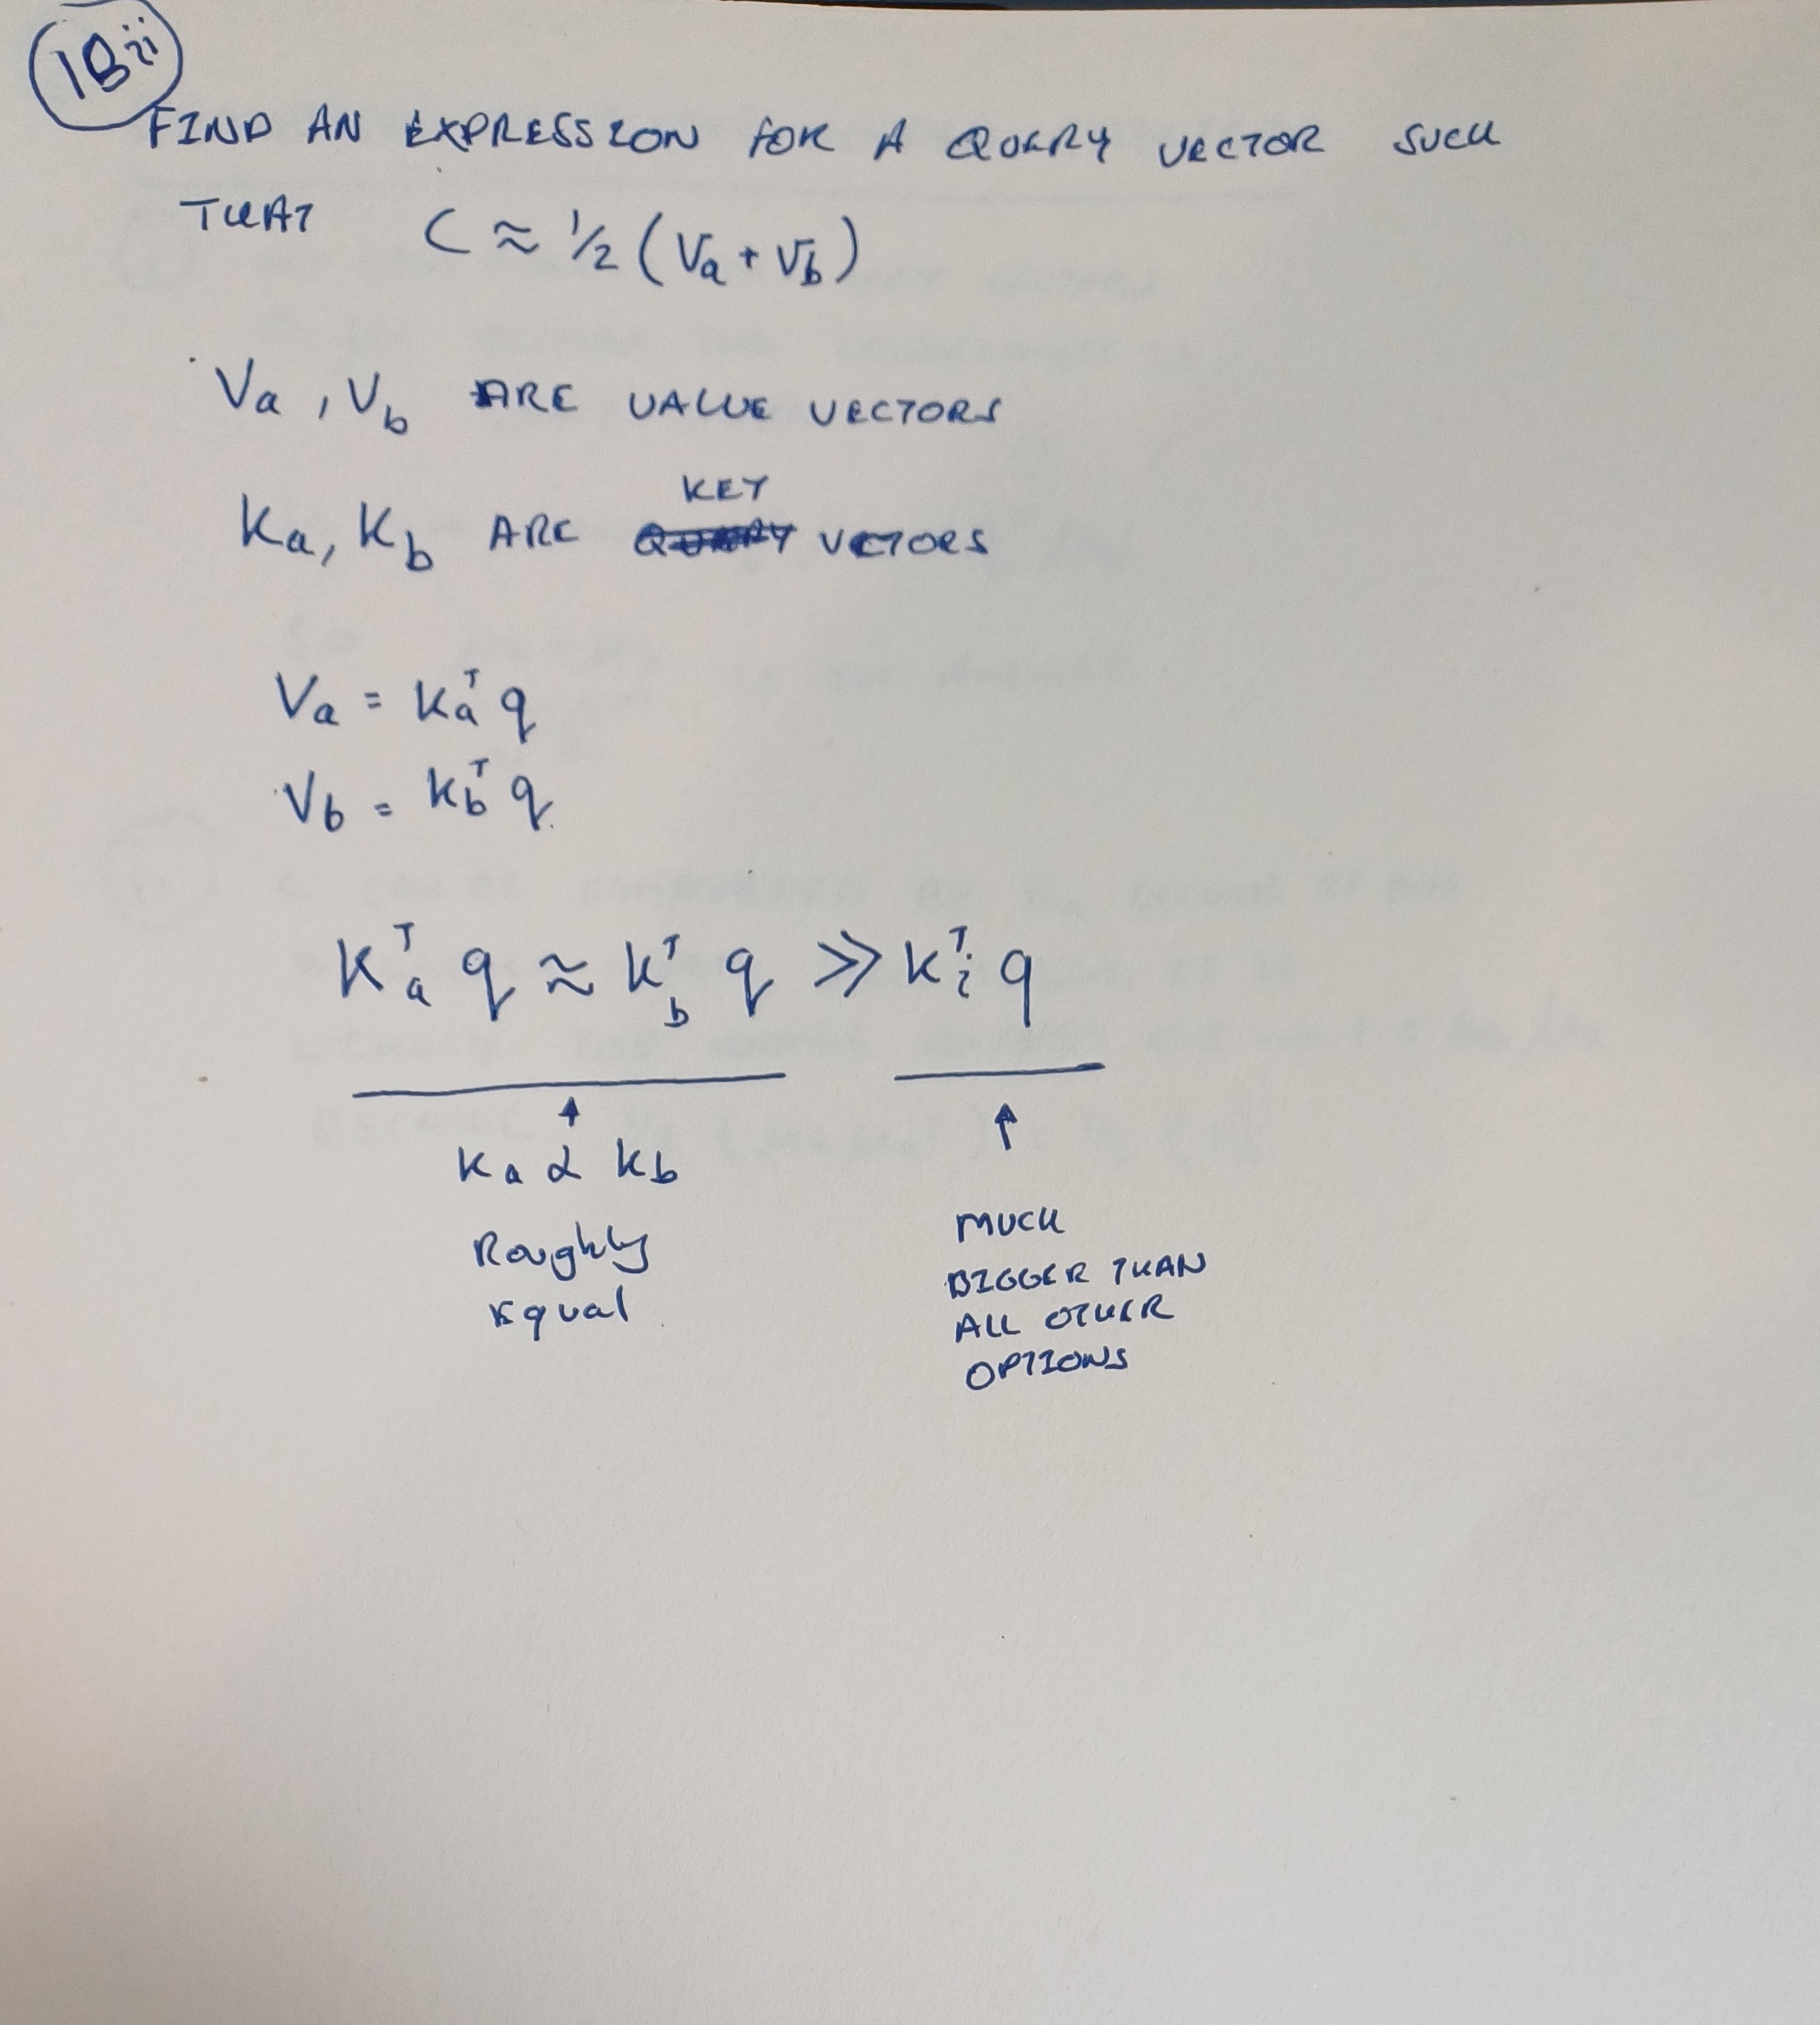 1Bii
FIND AN EXPRESSION FOR A QUERY VECTOR SUCH
THAT C ≈ 1/2 (Va + Vb)
Va, Vb ARE VALUE VECTORS
KEY
Ka, Kb ARE QUERY VECTORS
Va = Kaᵀ q
Vb = Kbᵀ q
Kaᵀ q ≈ Kbᵀ q ≫ Kiᵀ q
Ka & Kb
Roughly
Equal
MUCH
BIGGER THAN
ALL OTHER
OPTIONS